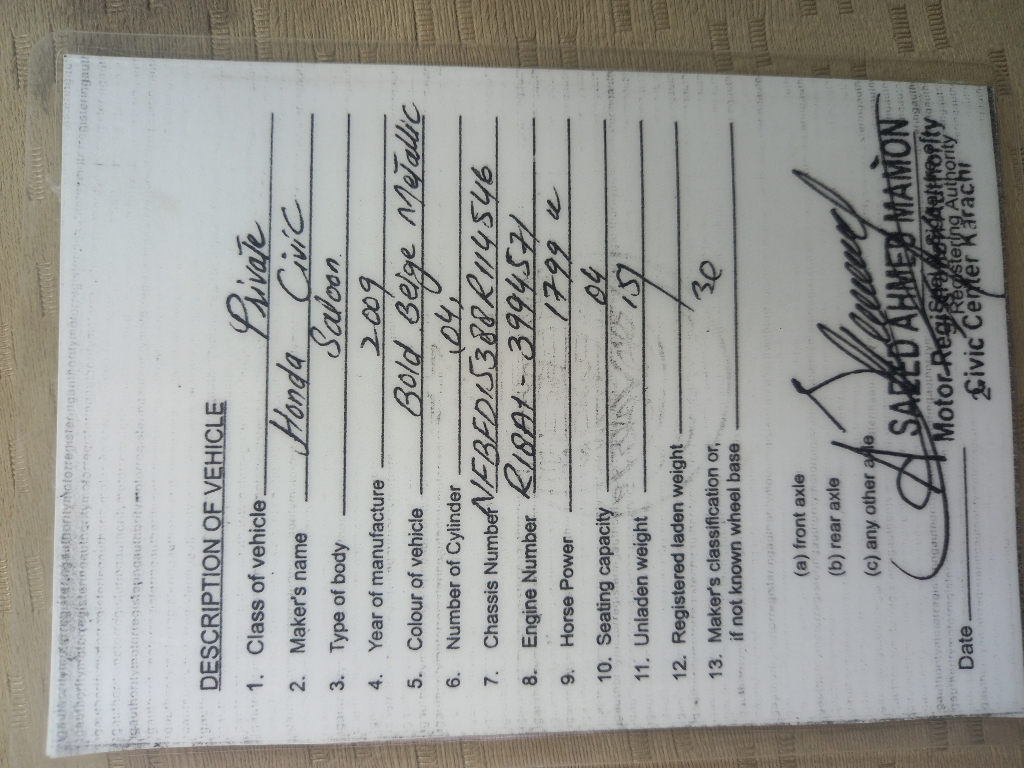 DESCRIPTION OF VEHICLE
1. Class of vehicle Private
2. Maker's name Honda Civic
3. Type of body Saloon
4. Year of manufacture 2009
5. Colour of vehicle Bold Beige Metallic
6. Number of Cylinder 04,
7. Chassis Number NFBFD15388R114546
8. Engine Number R18A1-3994571
9. Horse Power 1799
10. Seating capacity 04
11. Unladen weight
12. Registered laden weight
13. Maker's classification or,
if not known wheel base
(a) front axle
(b) rear axle
(c) any other axle
SAEED AHMED MAMON
Motor Registration Authority
Registering Authority
Civic Center Karachi
Date